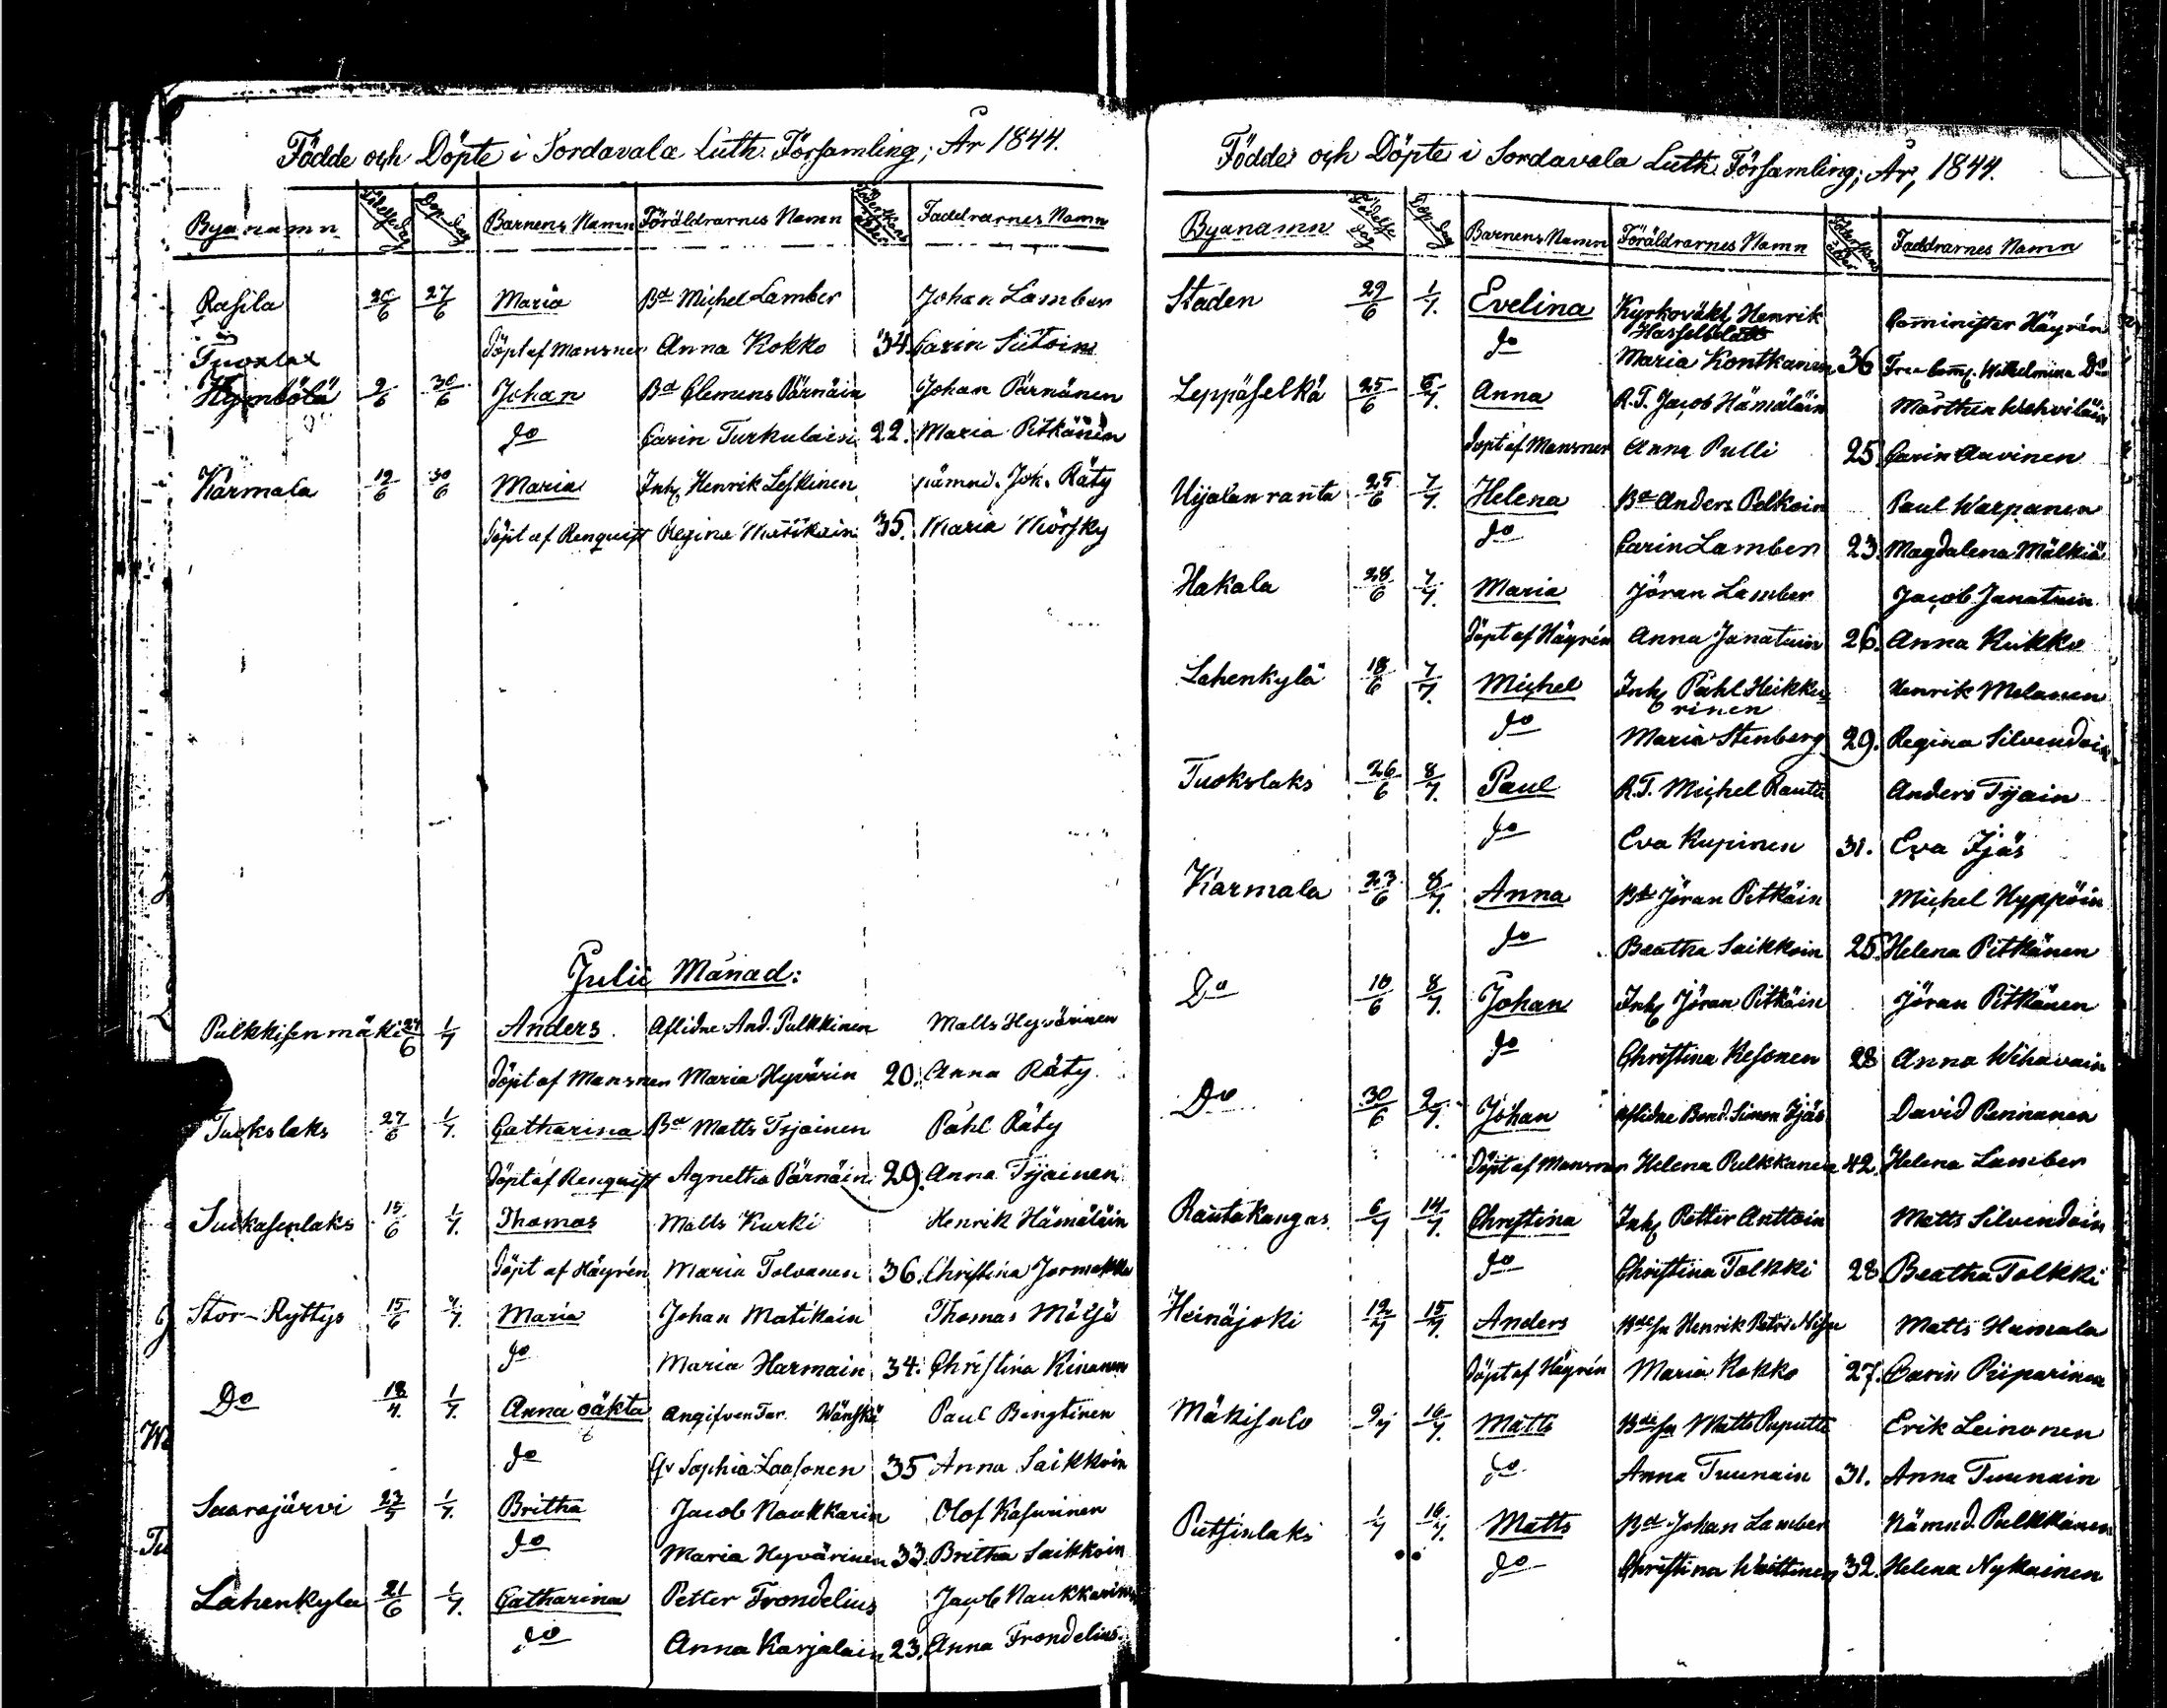 Födde och Döpte i Sordavala Luth. Församling; År 1844.
Byanamn Födelse Dag Dop Dag Barnens Namn Föräldrarnes Namn Faddrarnes Namn
Rasila 27/6 Maria Bd Michel Lamber Johan Lamber
Döpt af Mansner Anna Kokko 34. Carin Siitoin
Hymbölä 2/6 30/6 Johan Bd Clemens Pärnäin Johan Pärnänen
do Carin Turkulain 22. Maria Pitkänen
Karmala 12/6 30/6 Maria Inh. Henrik Leskinen nämnd. Joh. Räty
Döpt af Renquist Regina Matikain 35. Maria Mörsky
Julii Månad:
Pulkkisenmäki 24/6 1/7 Anders. Aflidne And. Pulkkinen Matts Hyvärinen
Döpt af Mansner Maria Hyvärin 20. Anna Räty.
Tuokslaks 27/6 1/7. Catharina Bd Matts Tyjainen Påhl Räty
Döpt af Renquist Agnetha Pärnäin 29. Anna Tyjainen
Suikasenlaks 15/6 1/7. Thomas Matts Kurki Henrik Hämäläin
Döpt af Häyrén Maria Tolvanen 36. Christina Jormakka
Stor-Ryttys 15/6 1/7. Maria Johan Matikain Thomas Mötjö
do Maria Harmain 34. Christina Kinanen
Do 18/4. 1/7. Anna oäkta Angifven Far. Wänskä Paul Bengtinen
do Qv Sophia Laasonen 35 Anna Saikkoin
Saarajärvi 23/5 1/7. Britha Jacob Naukkarin Olof Kasurinen
do Maria Hyvärinen 33. Britha Saikkoin
Lahenkylä 21/6 1/7. Catharina Petter Frondelius Jacob Naukkarinen
do Anna Karjalain 23. Anna Frondelius.
Födde och Döpte i Sordavala Luth. Församling; År, 1844.
Byanamn Födelse Dag Dop Dag Barnens Namn Föräldrarnes Namn Faddrarnes Namn
Staden 29/6 1/7. Evelina Kyrkovakt. Henrik Hasselblatt Cominister Häyrén
do Maria Kontkanen 36 Fru Com. Wilhelmina Do
Leppäselkä 25/6 6/7. Anna R.T. Jacob Hämäläin Mårthen Wehviläin
Döpt af Mansner Anna Pulli 25. Carin Aavinen
Uijalanranta 25/6 7/7. Helena Bd Anders Pelkoin Paul Warpanen
do Carin Lamber 23. Magdalena Mälkiä
Hakala 28/6 7/7. Maria Jöran Lamber Jacob Janatuin
Döpt af Häyrén Anna Janatuin 26. Anna Kukko
Lahenkylä 18/6 7/7. Michel Inh. Påhl Heikkurinen Henrik Melanen
do Maria Stenberg 29. Regina Silvendoin
Tuokslaks 26/6 8/7. Paul R.T. Michel Rautio Anders Tyjain
do Eva Kupinen 31. Eva Ijäs
Karmala 23/6 8/7. Anna Bd Jöran Pitkäin Michel Hyppöin
do Beatha Saikkoin 25. Helena Pitkänen
Do 10/6 8/7. Johan Inh. Jöran Pitkäin Jöran Pitkänen
do Christina Kesonen 28 Anna Wihavain
Do 30/6 2/7. Johan Aflidne Bond. Simon Ijäs David Pennanen
Döpt af Mansner Helena Pulkkanen 42. Helena Lamber
Rautakangas 6/7 14/7. Christina Inh. Petter Anttoin Matts Silvendoin
do Christina Tolkki 28. Beatha Tolkki
Heinäjoki 12/7 15/7. Anders Henrik Matts Hamala
Döpt af Häyrén Maria Kokko 27. Carin Piiparinen
Mäkisalo 9/7 16/7. Matts Matts Puputti Erik Leinonen
do Anna Tuunain 31. Anna Tuunain
Putsinlaks 1/7 16/7. Matts Bd Johan Lamber Nämnd. Pulkkanen
do Christina Woittinen 32. Helena Nykainen